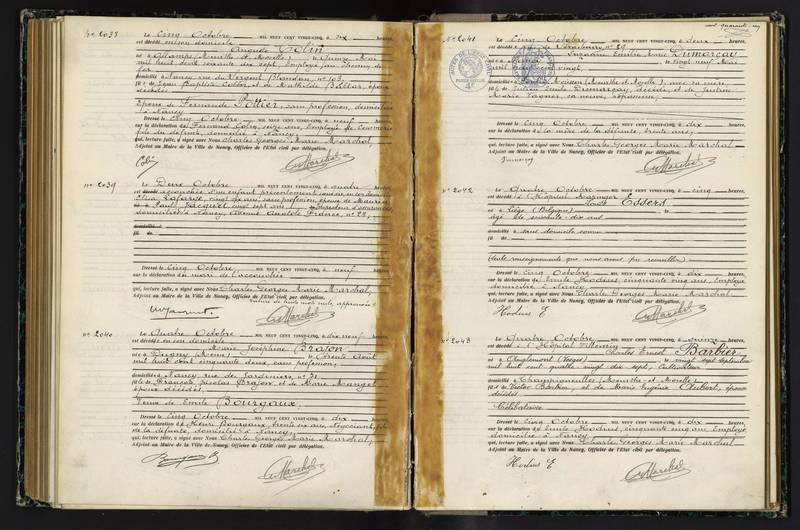 N° 2038
Le Cinq Octobre MIL NEUF CENT VINGT-CINQ, à dix heures,
est décédé en son domicile
Auguste Colin
né à Allamps (Meurthe et Moselle), le Quinze Mai
mil huit cent soixante dix sept, Employé au Chemin de
fer
domicilié à Nancy, rue du Sergent Blandan, n° 103,
fils de Jean Baptiste Colin, et de Mathilde
décédés
Epoux de Fernande Pottier, sans profession, domiciliée
à Nancy
Devant le Cinq Octobre MIL NEUF CENT VINGT-CINQ, à neuf heures,
sur la déclaration de Fernand Colin, seize ans, Employé de Commerce
fils du défunt, domicilié à Nancy,
qui, lecture faite, a signé avec Nous Charles Georges Marie Marchal,
Adjoint au Maire de la Ville de Nancy, Officier de l'Etat civil par délégation.
Colin
N° 2039
Le Deux Octobre MIL NEUF CENT VINGT-CINQ, à quatre heures,
est accouchée d'un enfant présentement sans vie, en son domicile
vingt six ans, sans profession, épouse de Maurice
Paul Jacquot, vingt sept ans
domiciliés à Nancy, Avenue Anatole France, n° 22,
domicilié
fils de
Devant le Cinq Octobre MIL NEUF CENT VINGT-CINQ, à neuf heures,
sur la déclaration du mari de l'accouchée
qui, lecture faite, a signé avec Nous Charles Georges Marie Marchal,
Adjoint au Maire de la Ville de Nancy, Officier de l'Etat civil par délégation.
N° 2040
Le Quatre Octobre MIL NEUF CENT VINGT-CINQ, à dix neuf heures,
est décédée en son domicile
Marie Joséphine Brajon
née à Dugny (Meuse), le Trente Août
mil huit cent cinquante deux, sans profession,
domiciliée à Nancy, rue des Jardiniers, n° 31,
fille de François Nicolas Brajon, et de Marie Mangel,
époux décédés,
Veuve de Emile Bourgaux,
Devant le Cinq Octobre MIL NEUF CENT VINGT-CINQ, à dix heures,
sur la déclaration de Bourgaux, trente six ans, Négociant, fils
de la défunte, domicilié à Nancy,
qui, lecture faite, a signé avec Nous Charles Georges Marie Marchal,
Adjoint au Maire de la Ville de Nancy, Officier de l'Etat civil par délégation.
N° 2041
Le Cinq Octobre MIL NEUF CENT VINGT-CINQ, à deux heures,
est décédée rue de Strasbourg, n° 29
Suzanne Emilie Marie Dumarcay
née à Nancy, le vingt neuf Mai
mil neuf cent vingt,
(Meurthe et Moselle), avec sa mère
fille de Julien Emile Dumarcay, décédé, et de
Marie Vagner, sa veuve,
Devant le Cinq Octobre MIL NEUF CENT VINGT-CINQ, à dix heures,
sur la déclaration de la mère de la défunte, trente ans,
qui, lecture faite, a signé avec Nous Charles Georges Marie Marchal
Adjoint au Maire de la Ville de Nancy, Officier de l'Etat civil par délégation.
N° 2042
Le Quatre Octobre MIL NEUF CENT VINGT-CINQ, à cinq heures,
est décédé à l'Hôpital Maringer
Louis Essers
né à Liège (Belgique), le
âgé de soixante-dix ans
domicilié sans domicile connu
fils de
(seuls renseignements que nous avons pu recueillir)
Devant le Cinq Octobre MIL NEUF CENT VINGT-CINQ, à dix heures,
sur la déclaration de Emile Hodius, cinquante cinq ans, Employé
domicilié à Nancy
qui, lecture faite, a signé avec Nous Charles Georges Marie Marchal
Adjoint au Maire de la Ville de Nancy, Officier de l'Etat civil par délégation.
Hodius E
N° 2043
Le Quatre Octobre MIL NEUF CENT VINGT-CINQ, à quinze heures,
est décédé à l'Hôpital Villemin
Charles Ernest Barbier
né à (Vosges), le vingt sept Septembre
mil huit cent quatre vingt dix sept, Cultivateur
domicilié à Champigneulles (Meurthe et Moselle),
fils de Victor Barbier, et de Marie Virginie Aubert, époux
décédés
Célibataire
Devant le Cinq Octobre MIL NEUF CENT VINGT-CINQ, à dix heures,
sur la déclaration de Emile Hodius, cinquante cinq ans, Employé
domicilié à Nancy
qui, lecture faite, a signé avec Nous Charles Georges Marie Marchal
Adjoint au Maire de la Ville de Nancy, Officier de l'Etat civil par délégation.
Hodius E